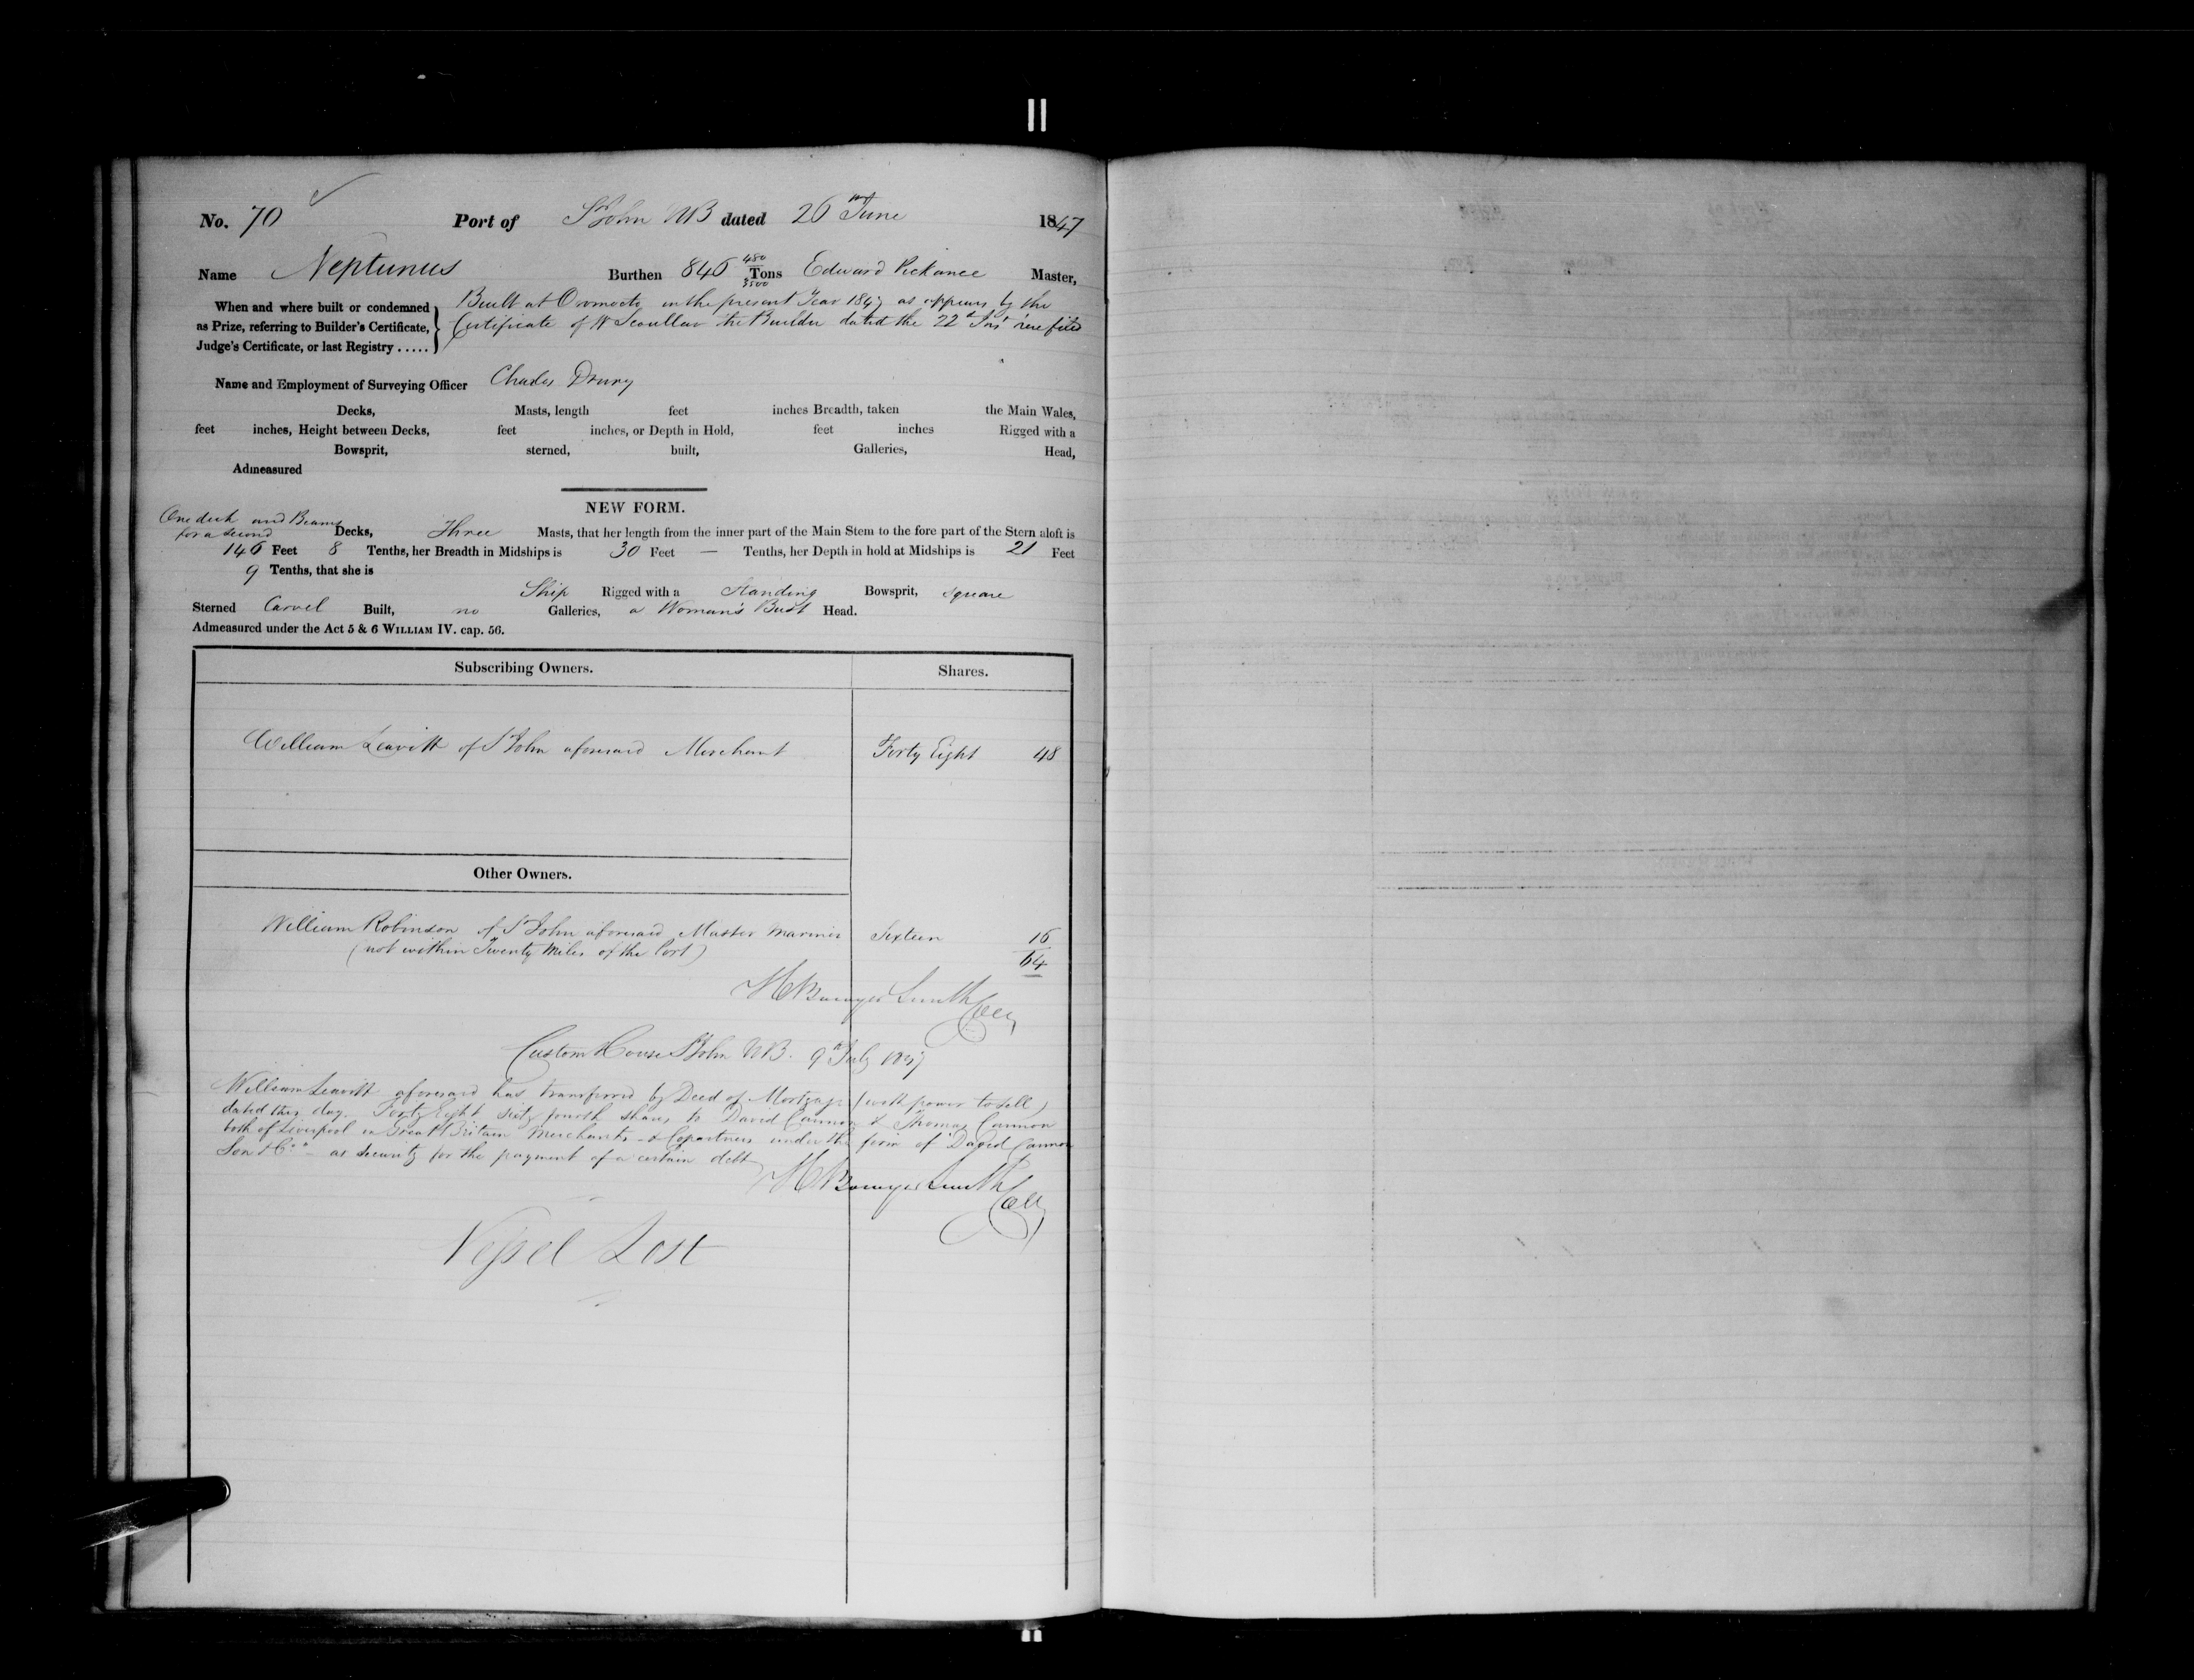 No. 70 Port of St John NB dated 26th June 1847
Name Neptunus Burthen 846 480/3500 Tons Edward Pickance Master,
When and where built or condemned as Prize, referring to Builder's Certificate, Judge's Certificate, or last Registry .....
Built at Oromocto in the present Year 1847 as appears by the
Certificate of W Scoullar the Builder dated the 22d Inst here filed
Name and Employment of Surveying Officer Charles Drury
Decks, Masts, length feet inches Breadth, taken the Main Wales,
feet inches, Height between Decks, feet inches, or Depth in Hold, feet inches Rigged with a
Bowsprit, sterned, built, Galleries, Head,
Admeasured
NEW FORM.
One deck and Beams
for a second Decks, Three Masts, that her length from the inner part of the Main Stem to the fore part of the Stern aloft is
146 Feet 8 Tenths, her Breadth in Midships is 30 Feet — Tenths, her Depth in hold at Midships is 21 Feet
9 Tenths, that she is
Ship Rigged with a Standing Bowsprit, square
Sterned Carvel Built, no Galleries, a Woman's Bust Head.
Admeasured under the Act 5 & 6 WILLIAM IV. cap. 56.
Subscribing Owners. Shares.
William Leavitt of St John aforesaid Merchant Forty Eight 48
Other Owners.
William Robinson of St John aforesaid Master Mariner Sixteen 16
(not within Twenty Miles of the Port) 64
H Bowyer Smith Coll
Custom House St John NB. 9th July 1847
William Leavitt aforesaid has transferred by Deed of Mortgage (with power to sell)
dated this day. Forty Eight Sixty fourth shares to David Cannon & Thomas Cannon
both of Liverpool in Great Britain Merchants & Copartners under the firm of "David Cannon
Son & Co" – as security for the payment of a certain debt
H Bowyer Smith Coll
Vessel Lost